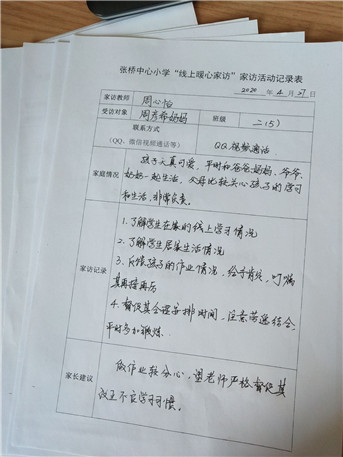 张桥中心小学“线上暖心家访”家访活动记录表
2020 年 4 月 27 日
家访教师 周心怡
受访对象 周秀希妈妈 班级 二(5)
联系方式
(QQ、微信视频通话等) QQ视频通话
孩子天真可爱,平时和爸爸妈妈、爷爷、
家庭情况 奶奶一起生活,父母比较关心孩子的学习
和生活,非常负责。
1.了解学生在家的线上学习情况
2.了解学生居家生活情况
家访记录 3.反馈孩子的作业情况,给予肯定,叮嘱
其再接再厉
4.督促其合理安排时间,注意劳逸结合,
平时多加锻炼.
做作业较分心,望老师严格督促其
家长建议 改正不良学习习惯。